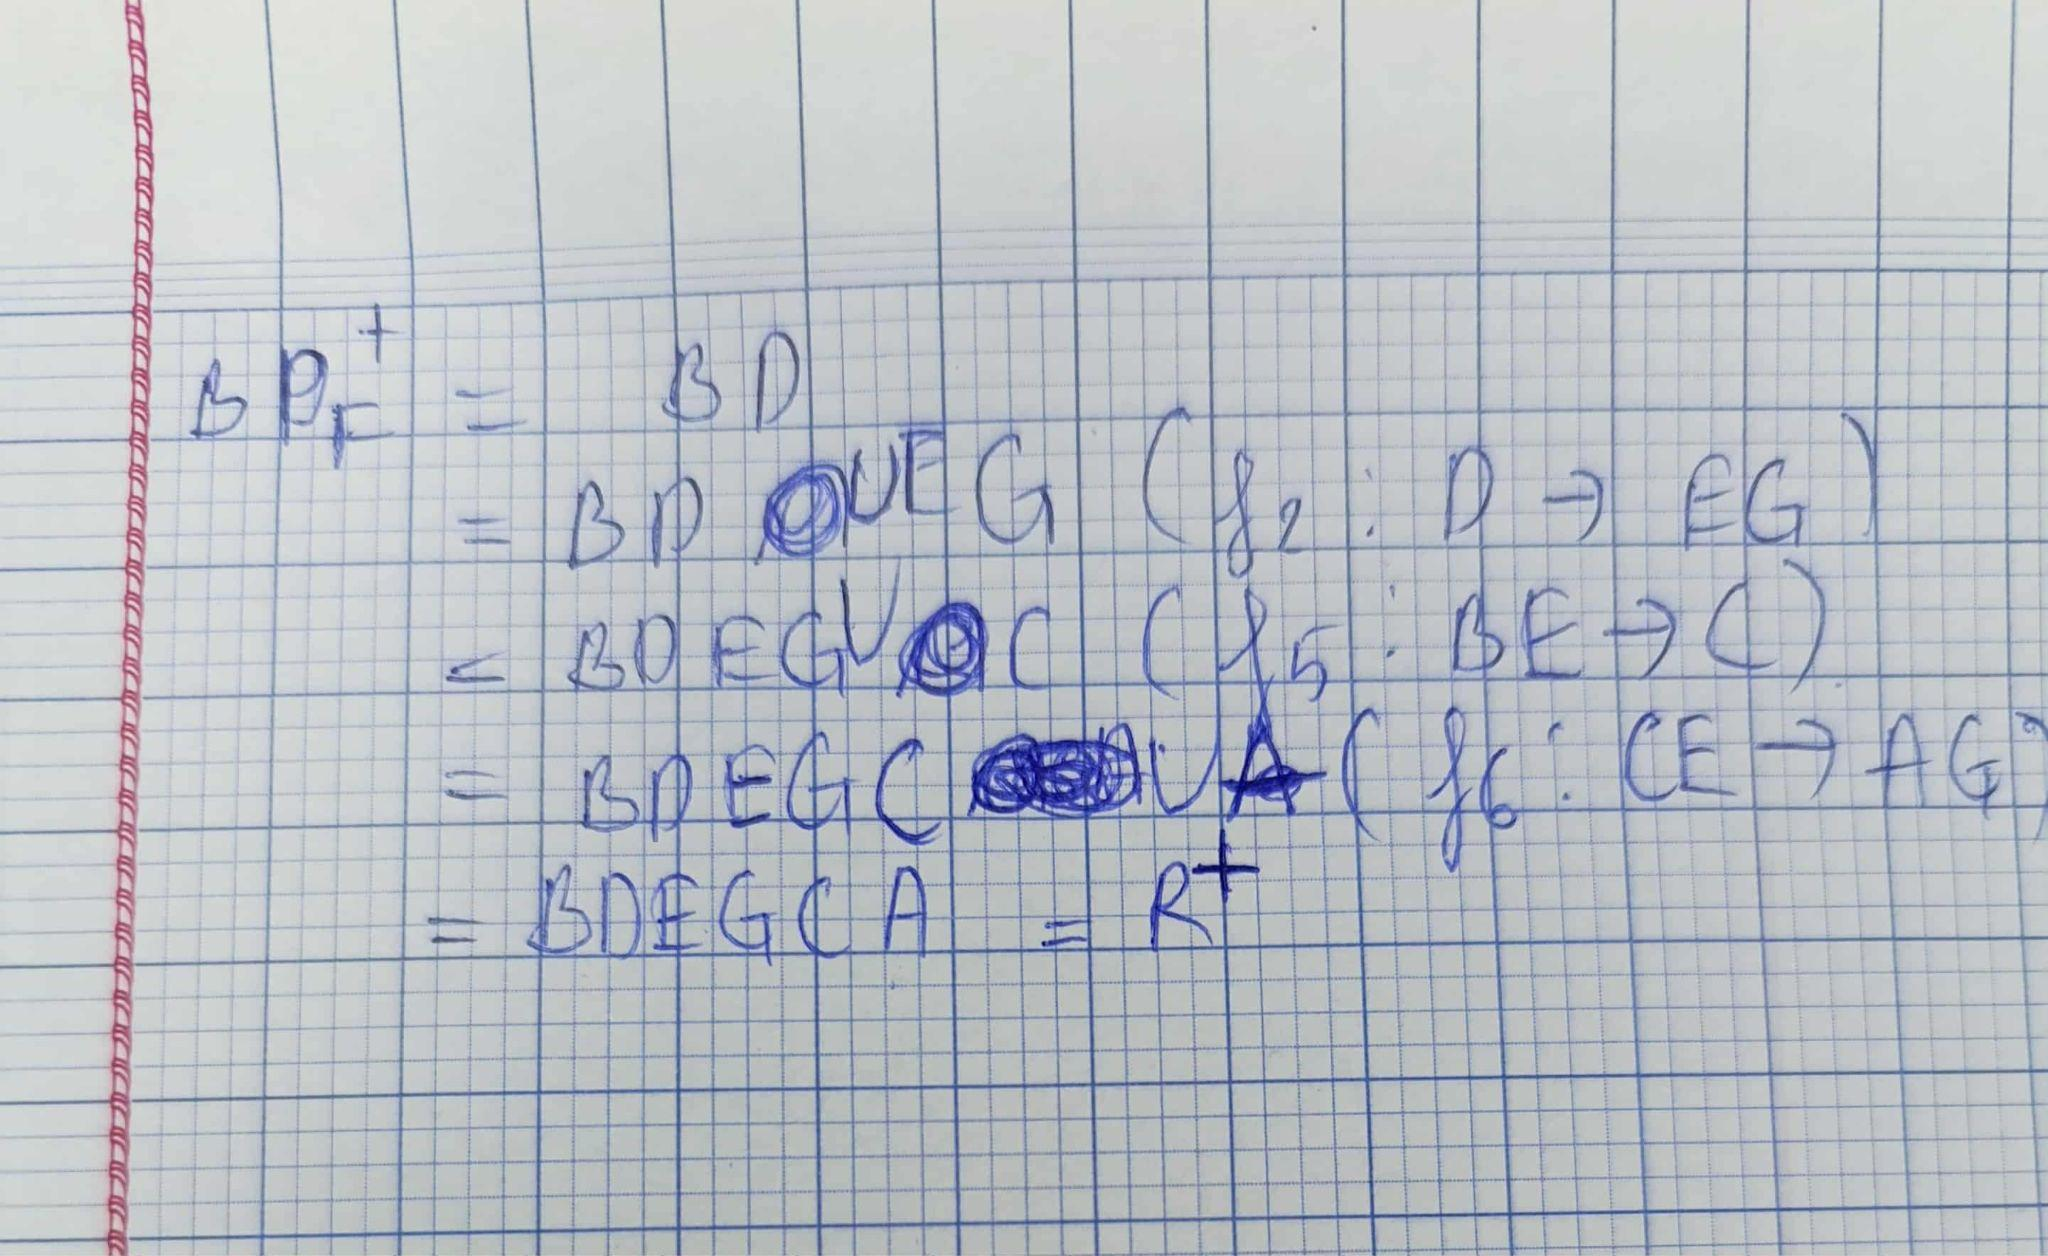 BD_F^+ = BD
= BD ∪ EG (f2 : D → EG)
= BDEG ∪ C (f5 : BE → C)
= BDEGC ∪ A (f6 : CE → AG)
= BDEGCA = R^+